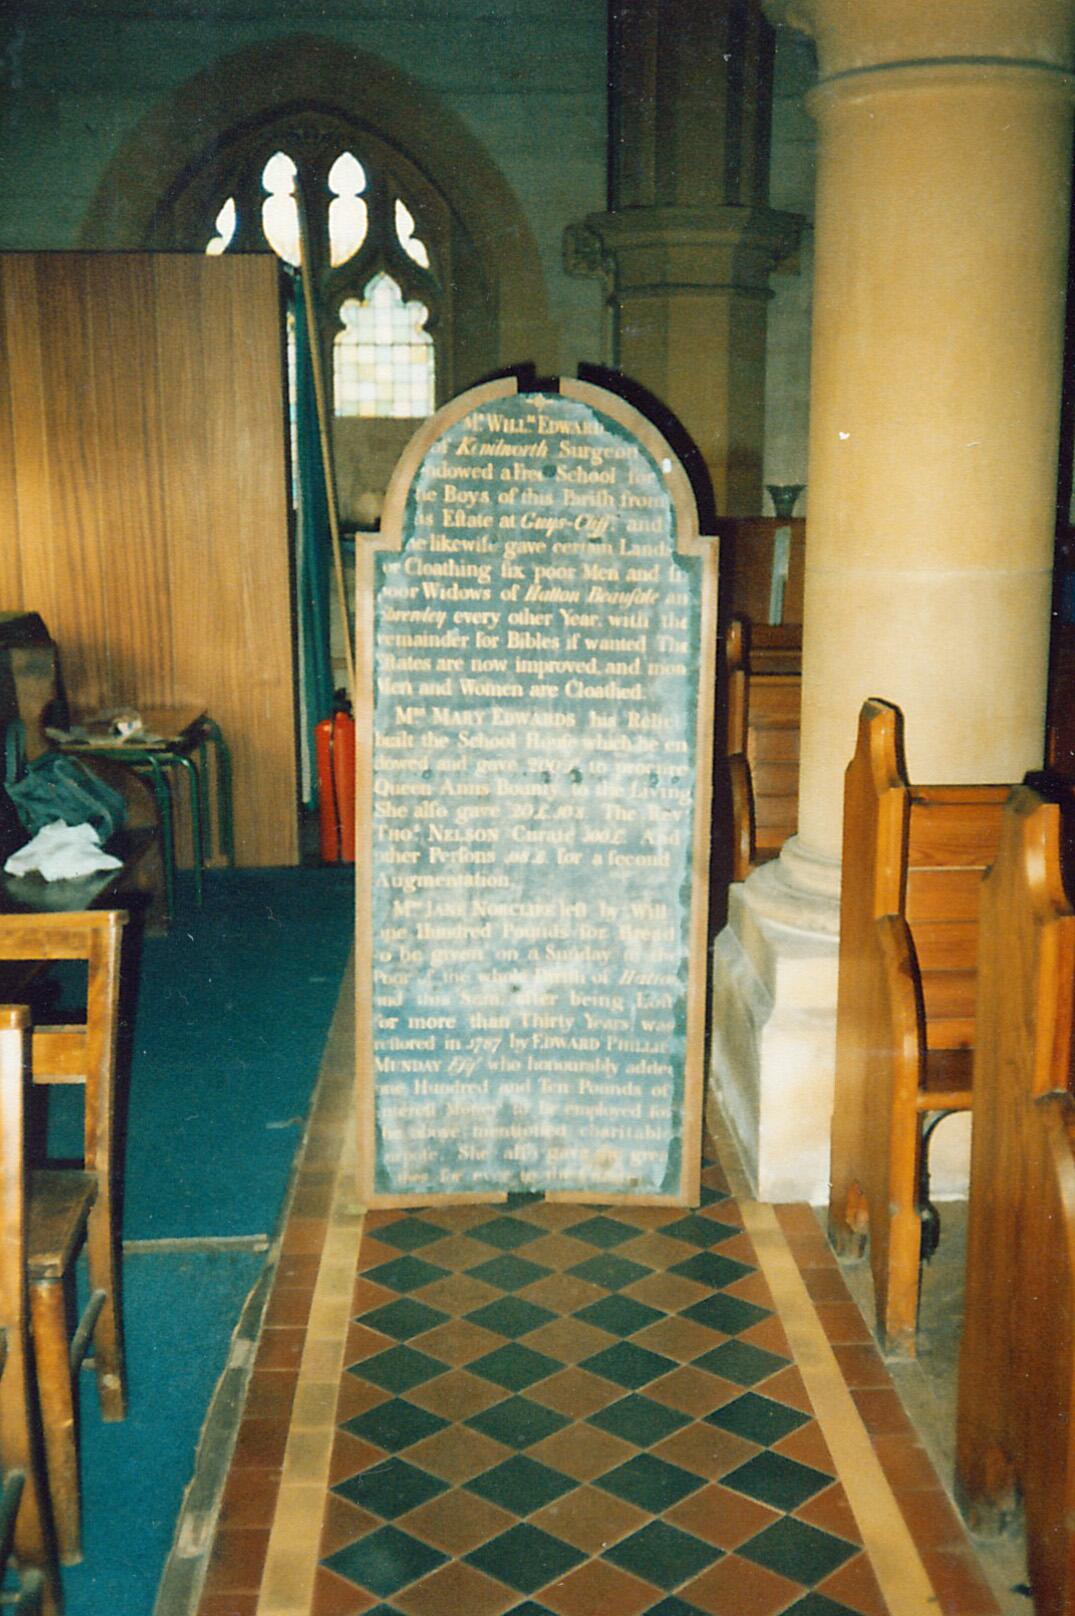 Mr. WILLM. EDWARD
of Kenilworth Surgeon
ndowed a Free School for
he Boys of this Parish from
is Estate at Guys-Cliff, and
he likewise gave certain Land
or Cloathing six poor Men and si
poor Widows of Hatton Beausale an
Shrewley every other Year, with the
remainder for Bibles if wanted The
Estates are now improved, and more
Men and Women are Cloathed.
Mrs MARY EDWARDS his Relict
built the School House which he en
dowed and gave 200£ to procure
Queen Anns Bounty to the Living
She also gave 20£.10s. The Rev
THOs NELSON Curate 300£. And
other Persons for a second
Augmentation.
Mrs JANE NORCLIFFE left by Will
one Hundred Pounds for Bread
to be given on a Sunday to the
Poor of the whole Parish of Hatton
and this Sum, after being Lost
for more than Thirty Years was
restored in 1787 by EDWARD PHILLIP
MUNDAY Esqr who honourably added
one Hundred and Ten Pounds of
Interest Money to be employed for
the above mentioned charitable
She also gave
for ever to the